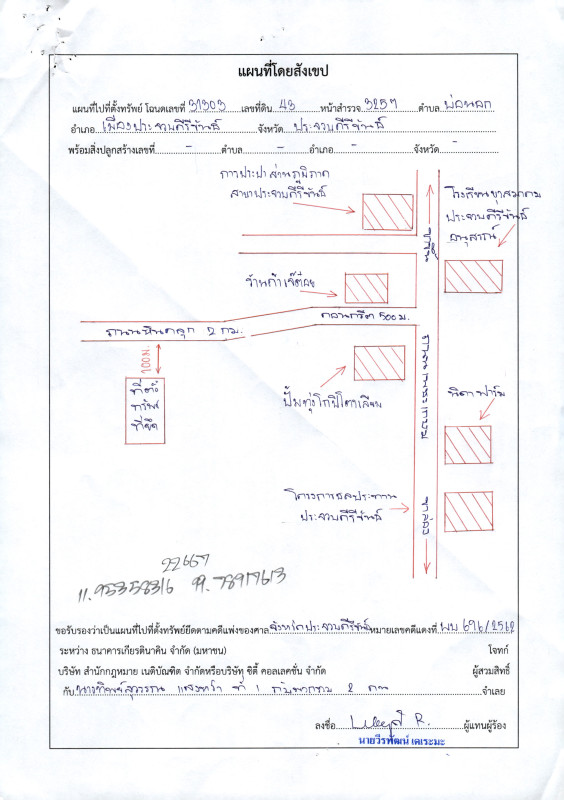 แผนที่โดยสังเขป
แผนที่ไปที่ตั้งทรัพย์ โฉนดเลขที่ 31303 เลขที่ดิน 43 หน้าสำรวจ 3257 ตำบล บ่อนอก
อำเภอ เมืองประจวบคีรีขันธ์ จังหวัด ประจวบคีรีขันธ์
พร้อมสิ่งปลูกสร้างเลขที่ - ตำบล - อำเภอ - จังหวัด -
การประปาส่วนภูมิภาค
สาขาประจวบคีรีขันธ์
ประจวบคีรีขันธ์
อนุสารณ์
คอนกรีต 500 ม.
ถนนหินคลุก 2 กม.
100 ม.
ที่ตั้ง
ทรัพย์
ที่ยึด
ถนนเพชรเกษม
โครงการชลประทาน
ประจวบคีรีขันธ์
22667
11.95358316 99.78917613
ขอรับรองว่าเป็นแผนที่ไปที่ตั้งทรัพย์ยึดตามคดีแพ่งของศาล จังหวัดประจวบคีรีขันธ์ หมายเลขคดีแดงที่ ผบ 696/2562
ระหว่าง ธนาคารเกียรตินาคิน จำกัด (มหาชน) โจทก์
บริษัท สำนักกฎหมาย เนติบัณฑิต จำกัดหรือบริษัทุ ซิตี้ คอลเลคชั่น จำกัด ผู้สวมสิทธิ์
กับ ที่ 1 กับพวกรวม 2 คน จำเลย
ลงชื่อ ผู้แทนผู้ร้อง
นายวีรพัฒน์ เคเระมะ